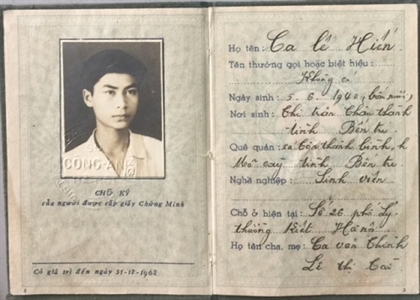 CÔNG-AN
CHỮ KÝ
của người được cấp giấy Chứng Minh
Có giá trị đến ngày 31-12-1962
Họ tên: Ca Lê Hiến
Tên thường gọi hoặc biệt hiệu:
Không có
Ngày sinh: 5. 6. 1940
Nơi sinh: Thị trấn Châu thành
tỉnh Bến tre
Quê quán: thành bình, h
Mỏ cày tỉnh Bến tre
Nghề nghiệp: Sinh viên
Chỗ ở hiện tại: Số 26 phố Lý
thường Kiệt Hà nội
Họ tên cha, mẹ: Ca văn Thỉnh
Lê thị